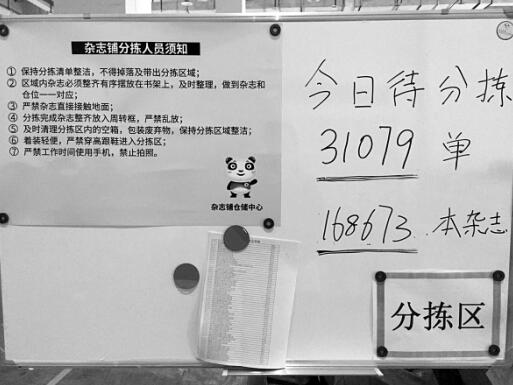 杂志铺分拣人员须知
① 保持分拣清单整洁，不得掉落及带出分拣区域；
② 区域内杂志必须整齐有序摆放在书架上，及时整理，做到杂志和
仓位一一对应；
③ 严禁杂志直接接触地面；
④ 分拣完成杂志整齐放入周转框，严禁乱放；
⑤ 及时清理分拣区内的空箱，包装废弃物，保持分拣区域整洁；
⑥ 着装轻便，严禁穿高跟鞋进入分拣区；
⑦ 严禁工作时间使用手机，禁止拍照。
杂志铺仓储中心
今日待分拣
31079 单
168673 本杂志
分拣区